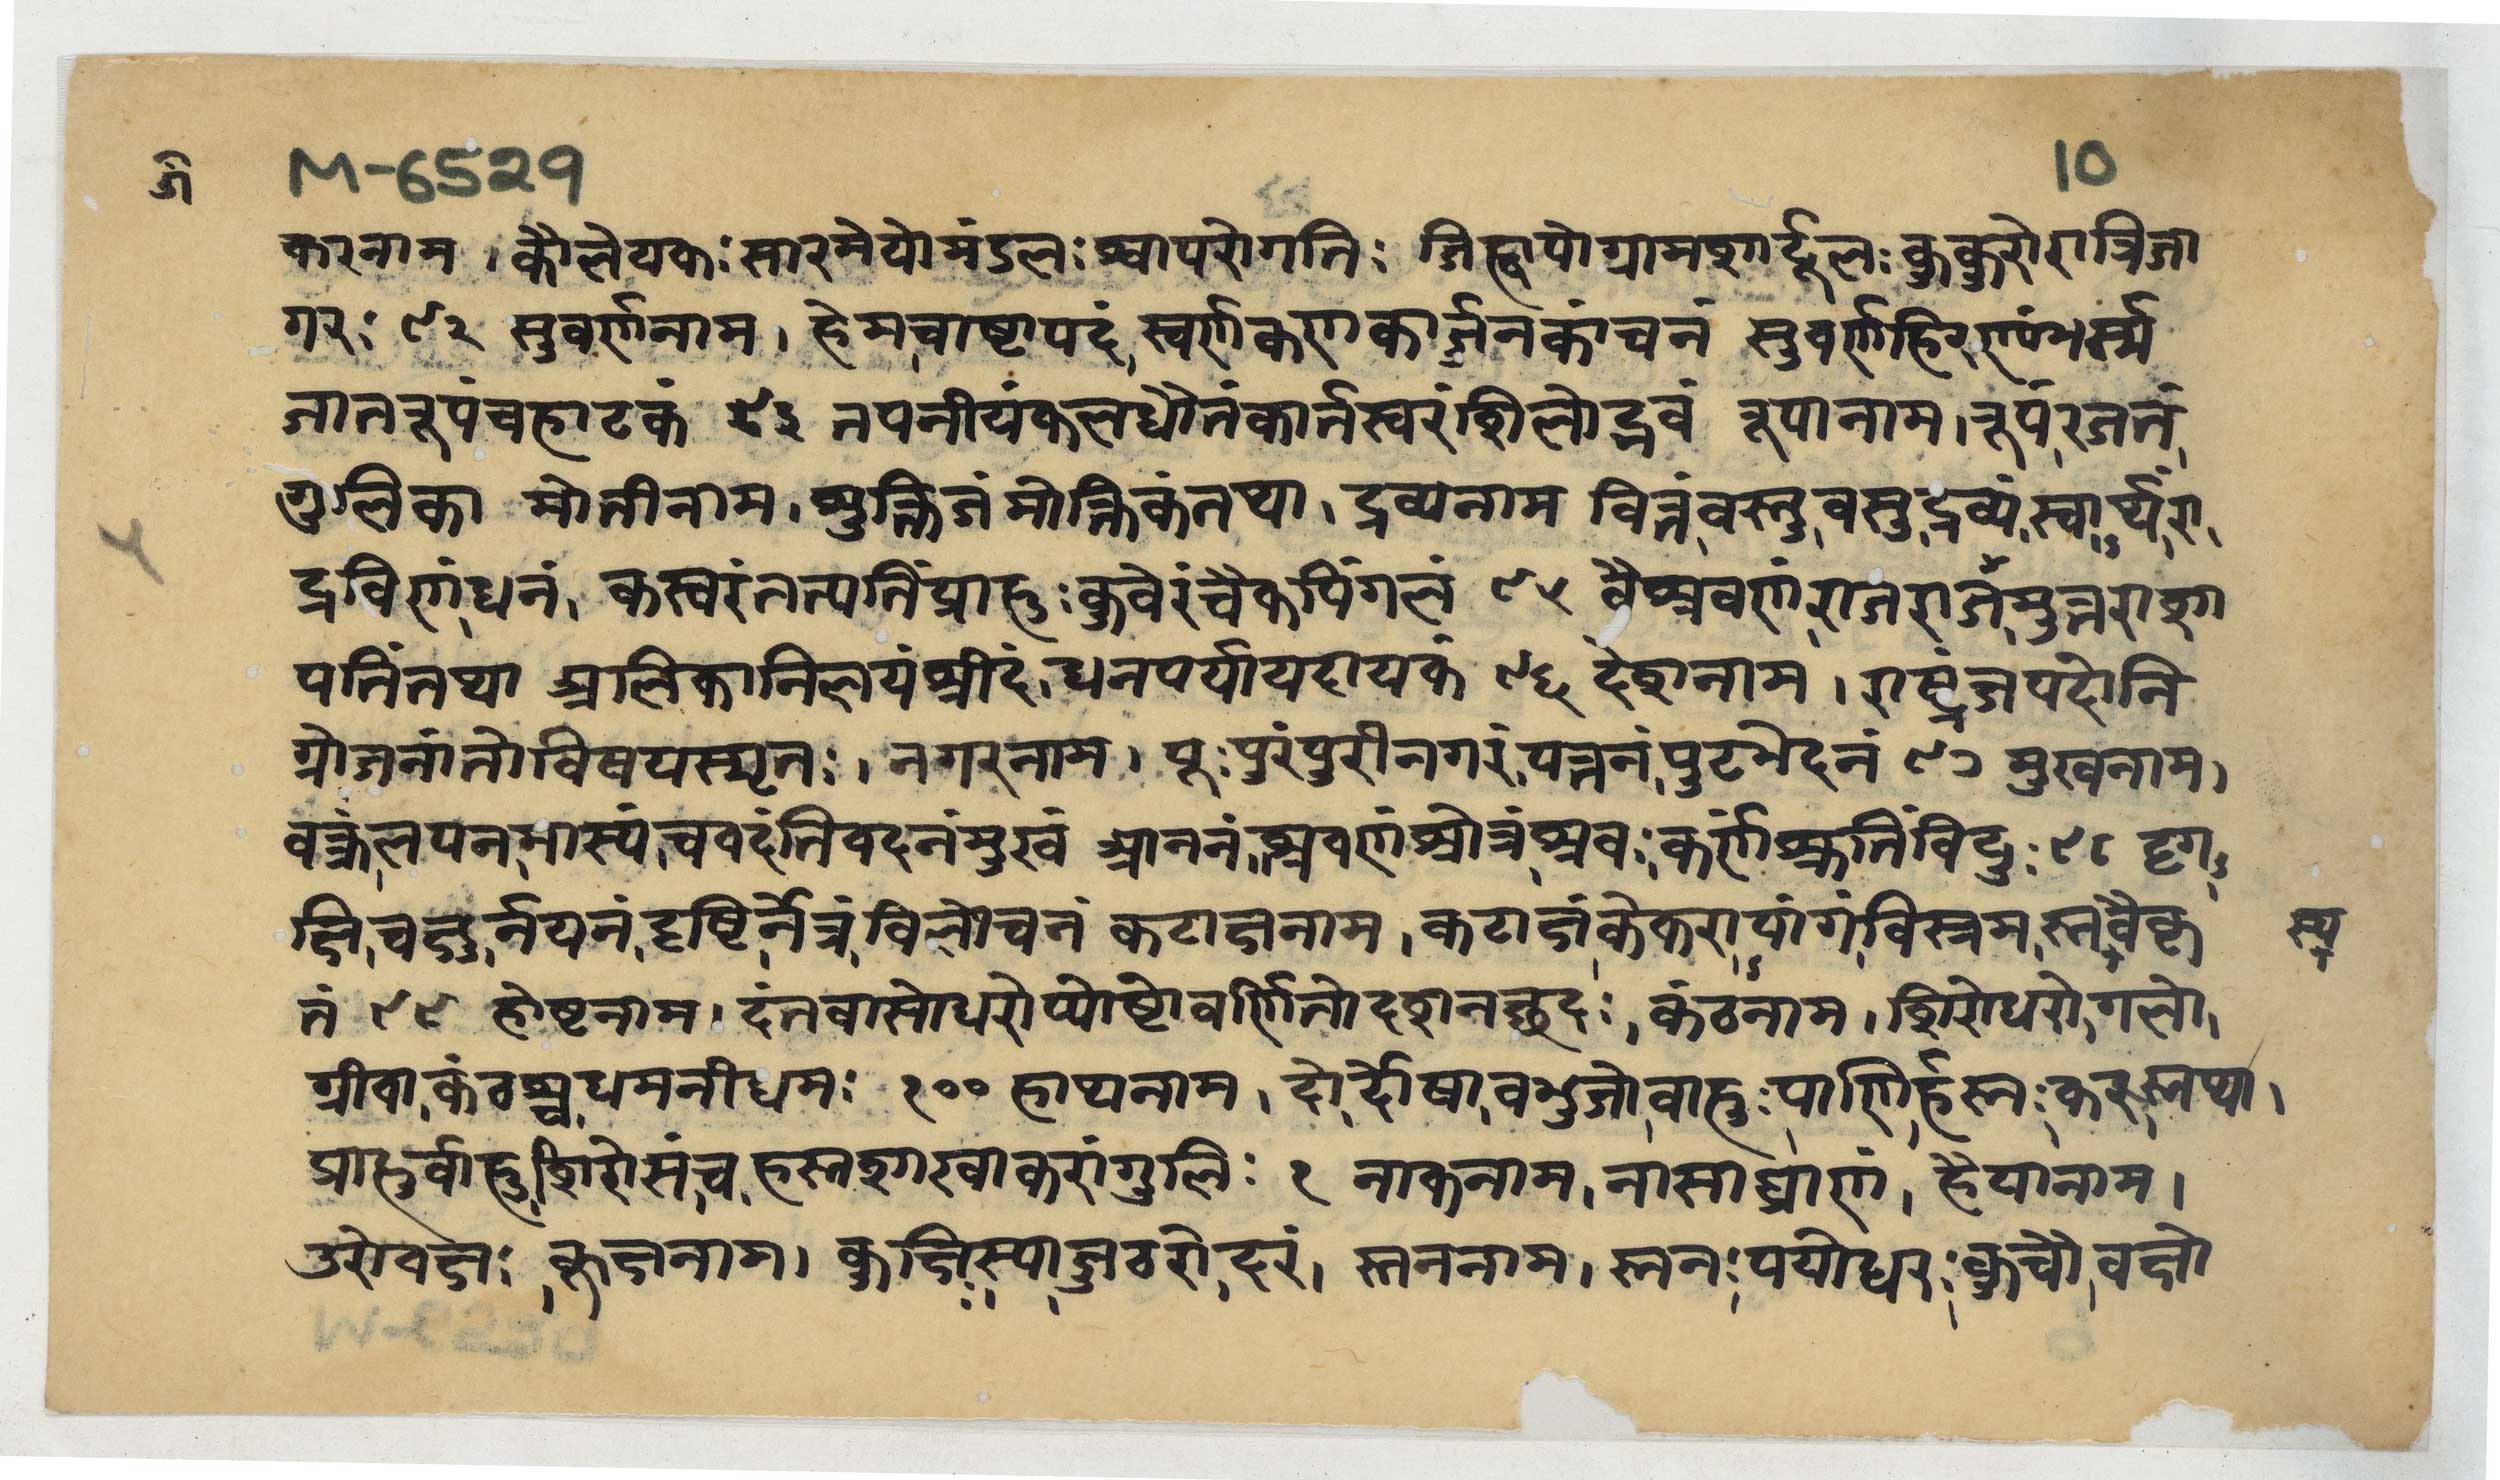 M-6529
10
करनाम । कौलेयकः सारमेयो मंडलः श्वापरोगति: जिह्वापो ग्रामशार्दूलः कुकुरो रात्रिजा
गरः ९२ सुवर्णनाम । हेम चाष्टापदं स्वर्णकणकार्जुनकांचनं सुवर्णहिरण्यंभर्म्म
जातरूपंचहाटकं ९३ तपनीयंकलधौतंकार्तस्वरंशिलोद्भवं रूपानाम । रूपंरजतं
गुलिका मोतीनाम । शुक्तिजं मौक्तिकंतथा । द्रव्यनाम वित्तंवस्तुवसुद्रव्यंस्वार्थंरा
द्रविणंधनं कस्वरंतत्पतिंप्राहुःकुवेरंचैकपिंगलं ९५ वैश्रवणंराजराजंमुत्तराशा
पतिंतथा अलिकानिलयंश्रीदंधनपर्यायदायकं ९६ देशनाम । राष्ट्रंजपदोनि
र्गोजनांतोविषयस्मृतः । नगरनाम । पूःपुरंपुरीनगरंपत्तनंपुटभेदनं ९७ मुखनाम ।
वक्त्रंलपनमास्यंचवदंतिवदनंमुखं आननंश्रवणंश्रोत्रंश्रवःकर्णंश्रुतिंविदुः ९८ दृग
क्षिचक्षुर्नयनंदृष्टिर्नेत्रंविलोचनं कटाक्षनाम । कटाक्षंकेकरापांगंविभ्रमस्तवैकृ
स्य
तं ९९ होष्टनाम । दंतवासोधरोप्योष्टोवर्णितोदशनछदः । कंठनाम । शिरोधरोगलो
ग्रीवाकंठश्चधमनीधमः १०० हाथनाम । दोर्दोषाचभुजोवाहुःपाणिर्हस्तःकरस्तथा ।
प्राहुर्वाहुशिरोसंचहस्तशाखाकरांगुलिः १ नाकनाम । नासाघ्राणं । हैयानाम ।
उरोवक्षः कूक्षनाम । कुक्षिःस्याज्जठरोदरं । स्तननाम । स्तनःपयोधरःकुचौवक्षो